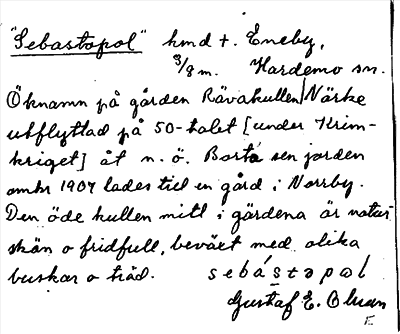 "Sebastopol" hmd t. Eneby,
3/8 m. Hardemo sn.
Öknamn på gården Rävakullen Närke
utflyttad på 50-talet [under Krim-
kriget] åt n. ö. Borta sen jorden
omkr 1907 lades till en gård i Norrby.
Den öde kullen mitt i gärdena är natur-
skön o fridfull, beväxt med olika
buskar o träd. sebástopol
Gustaf E. Olsson